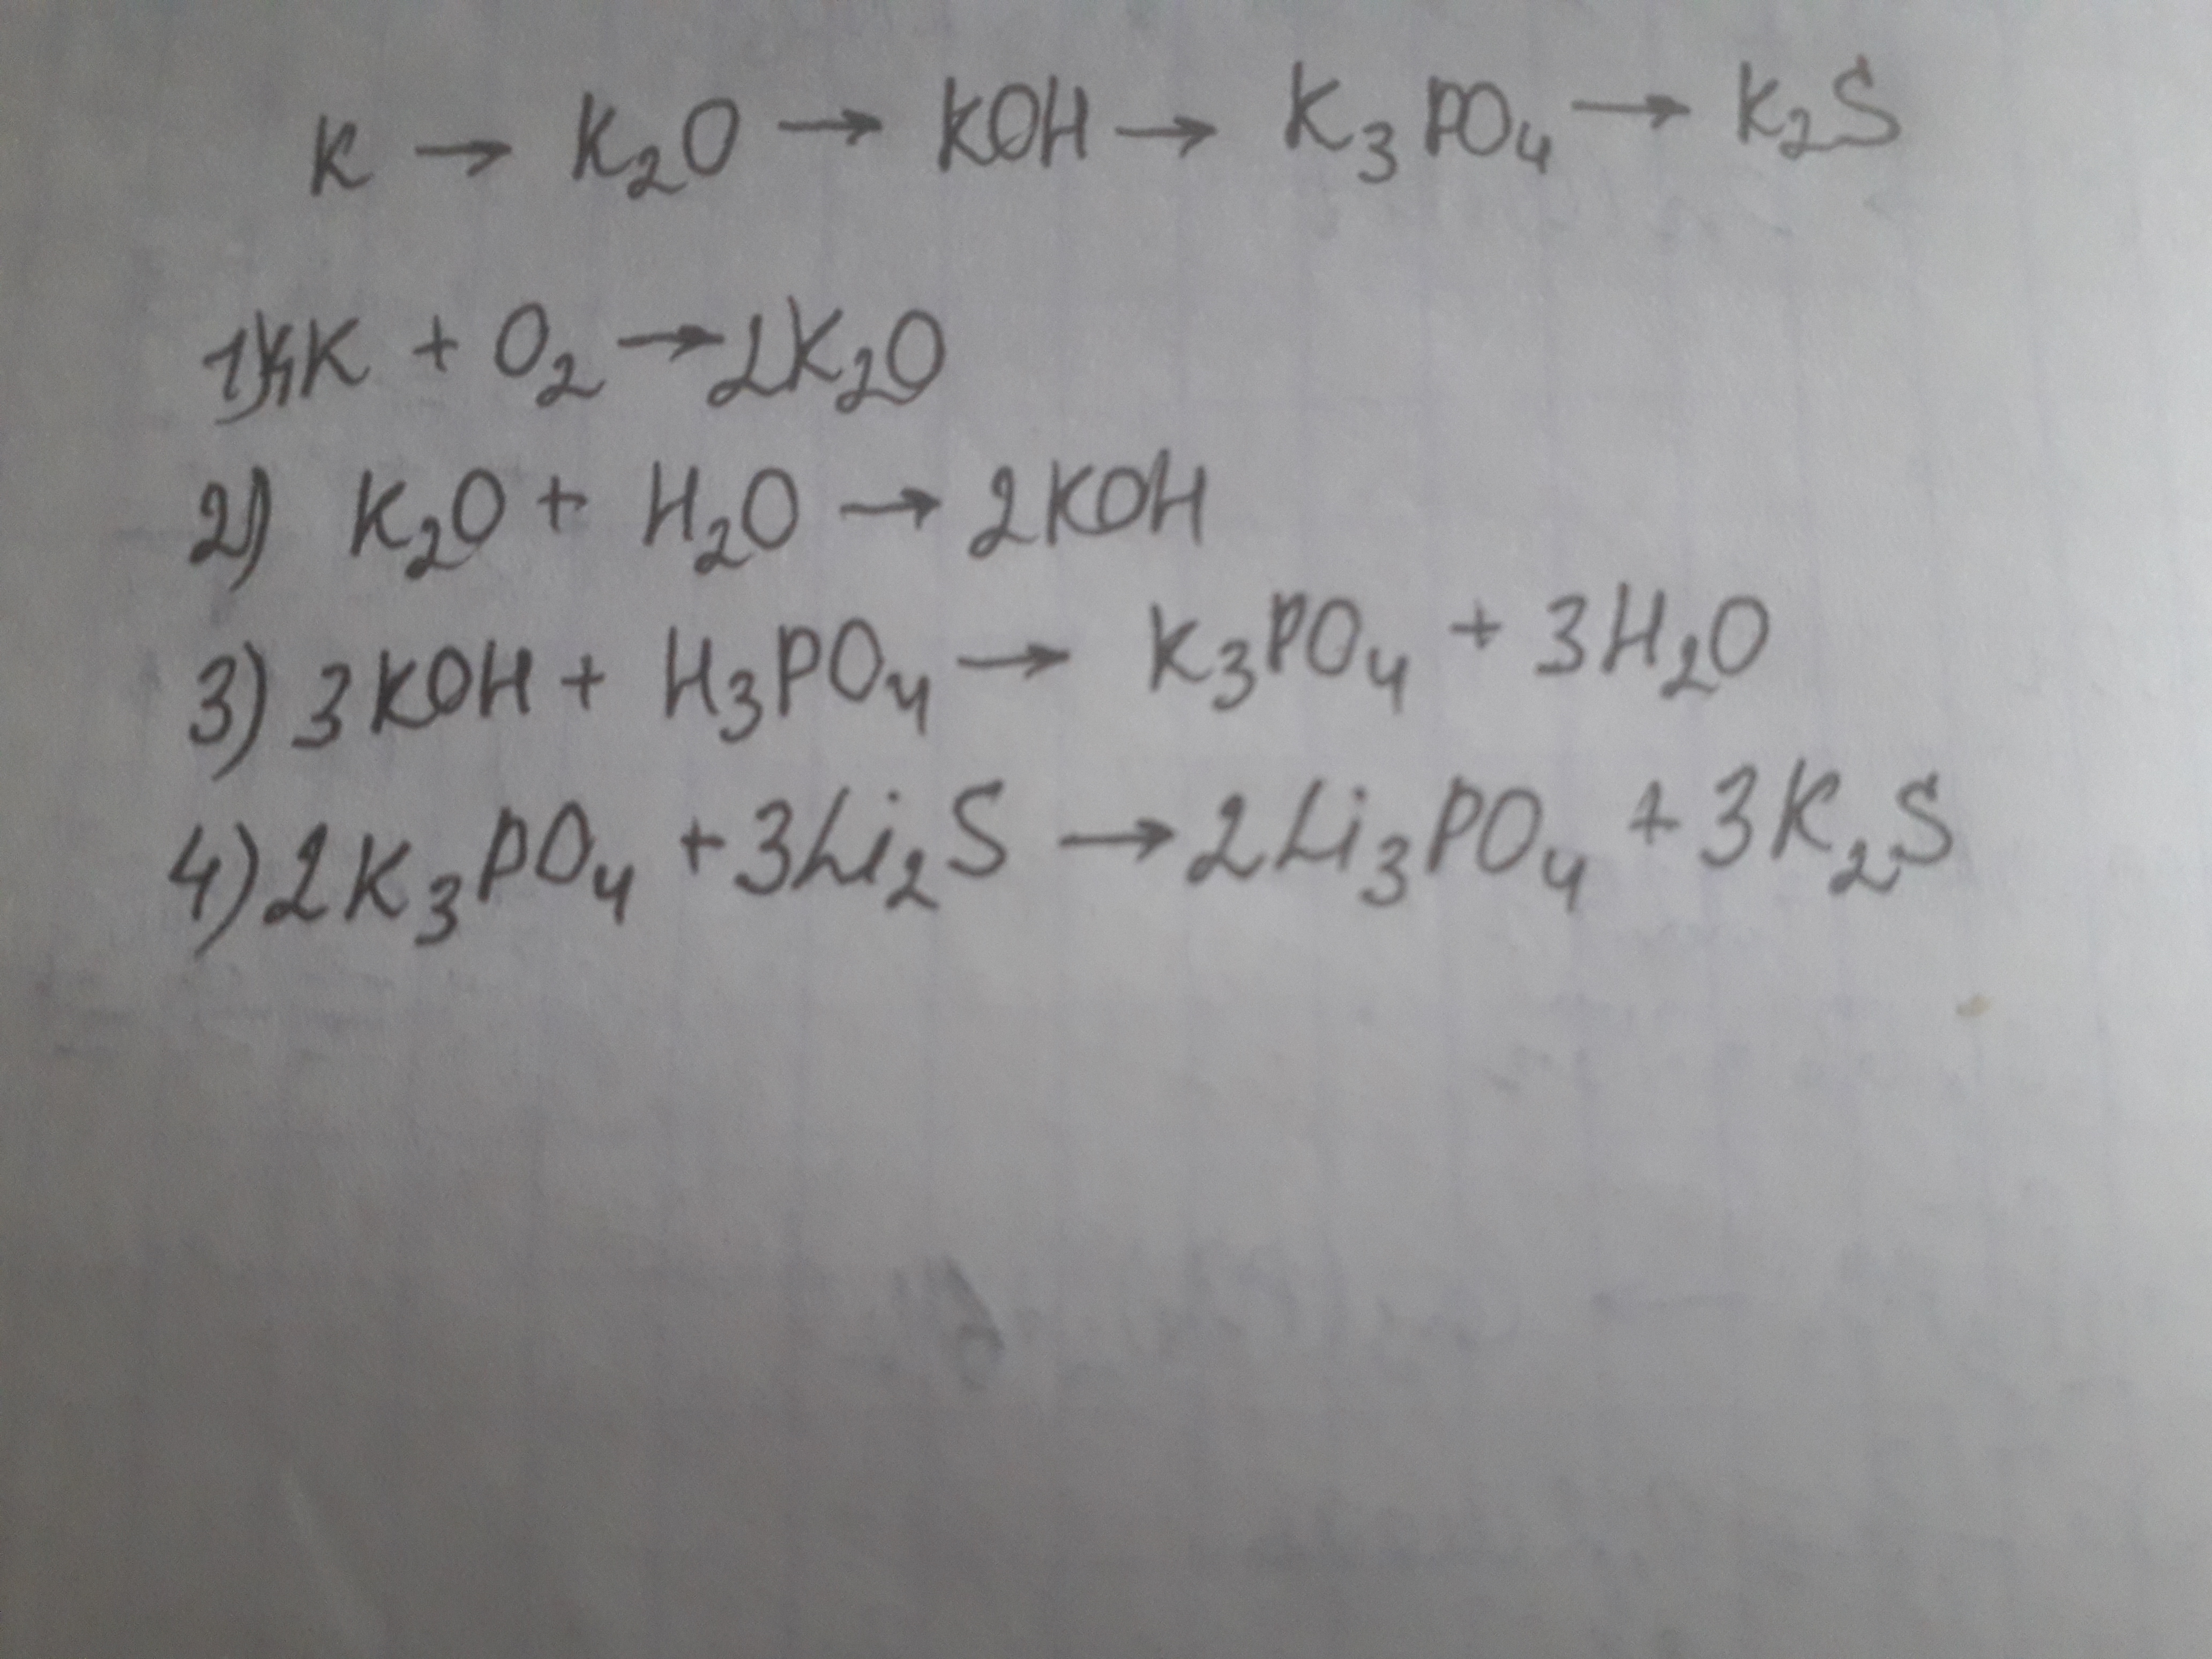 K → K₂O → KOH → K₃PO₄ → K₂S
1) 4K + O₂ → 2K₂O
2) K₂O + H₂O → 2KOH
3) 3KOH + H₃PO₄ → K₃PO₄ + 3H₂O
4) 2K₃PO₄ + 3Li₂S → 2Li₃PO₄ + 3K₂S